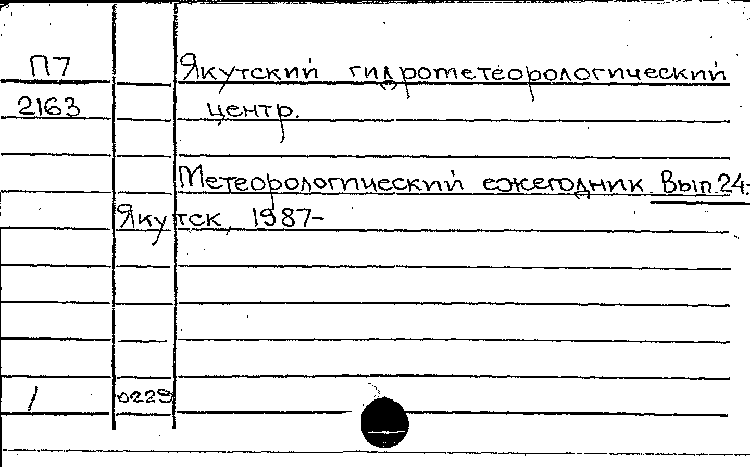 П7 Якутский гидрометеорологический
2163 центр.
Метеорологический ежегодник Вып. 24-
Якутск, 1987-
/ 0229